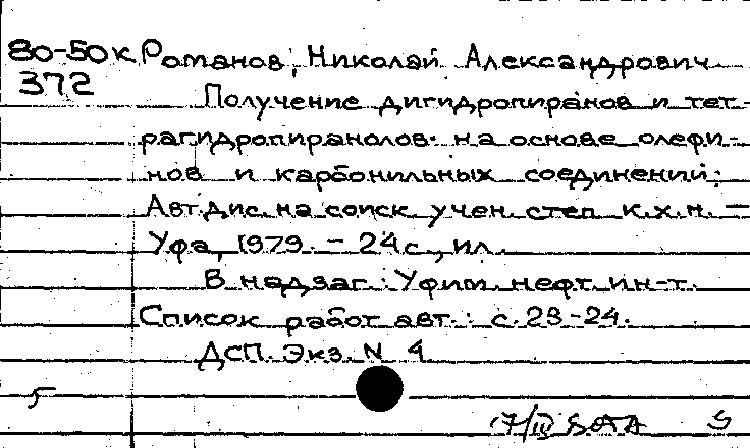 80-50к Романов, Николай Александрович
372
Получение дигидропиранов и тет-
рагидропиранолов на основе олефи-
нов и карбонильных соединений:
Авт.дис. на соиск. учен. степ. к.х.н. —
Уфа, 1979. - 24 с., ил.
В надзаг.: Уфим. нефт. ин-т.
Список работ авт.: с. 23-24.
ДСП. Экз. N 4
5
17/IV